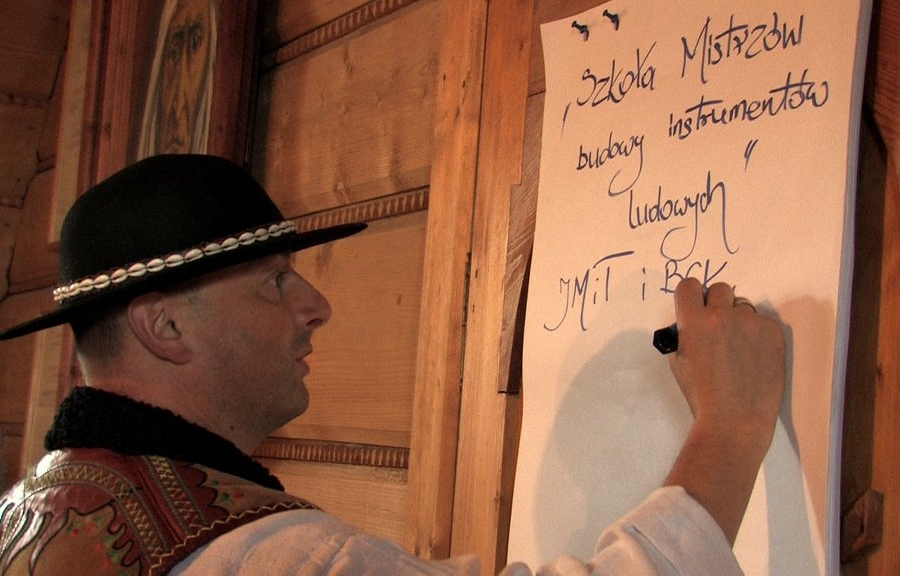 „Szkoła Mistrzów
budowy instrumentów
ludowych"
IMiT i BCK